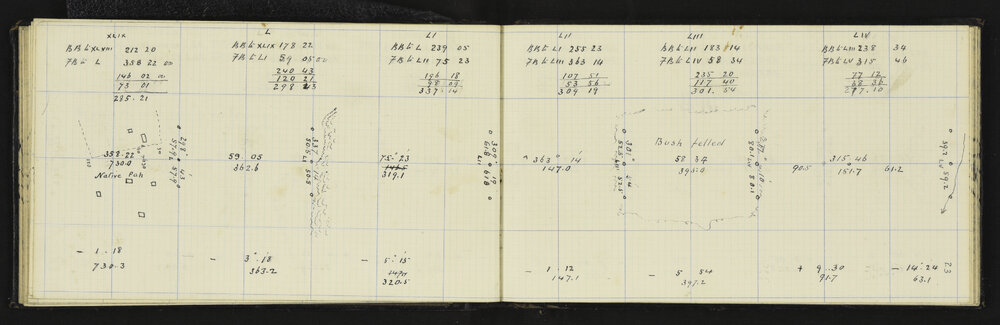 XLIX
BB to XLVIII 212 20
FB to L 358 22 00
146 02 00
73 01
285.21
358.22
730.0
Native Pah
- 1.18
730.3
L
BB to XLIX 178 22
FB to LI 59 05 00
240 43
120 21
298 43
59.05
362.6
- 3°.18'
363.2
LI
BB to L 239 05
FB to LII 75 23
196 18
98 09
337.14
75°.23'
319.1
- 5°.15'
320.5
LII
BB to LI 255 23
FB to LIII 363 14
107 51
53 56
309 19
309 19
618
618
LII
363° 14
147.0
- 1.12
147.1
LIII
BB to LII 183 14
FB to LIV 58 34
235 20
117 40
301.54
Bush felled
58 34
395.0
- 5 54
397.2
LIV
BB to LIII 238 34
FB to LV 315 46
77 12
297.10
90.5
315.46
151.7
61.2
592
LV
59.2
+ 9.30
91.7
- 14°.24
63.1
23